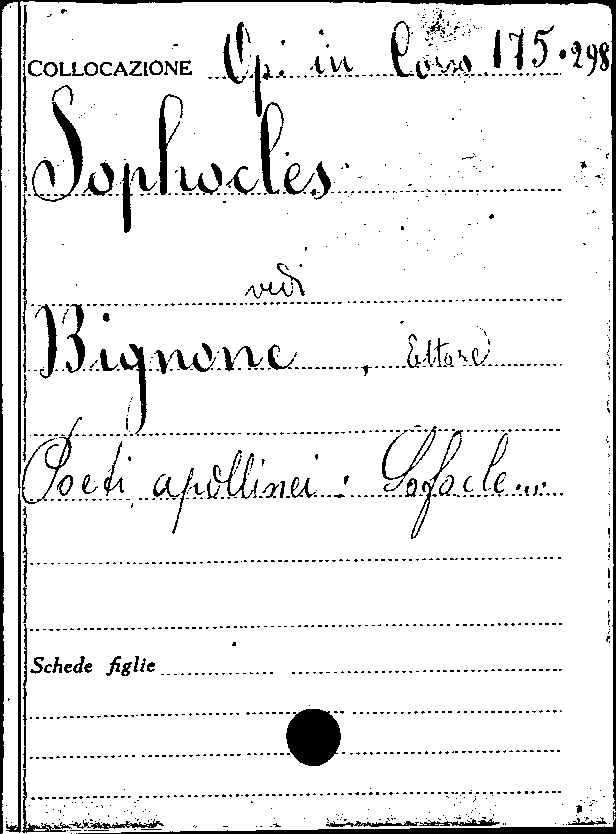 COLLOCAZIONE Op. in Corso 175.298
Sophocles
vedi
Bignone, Ettore
Poeti apollinei : Sofocle...
Schede figlie